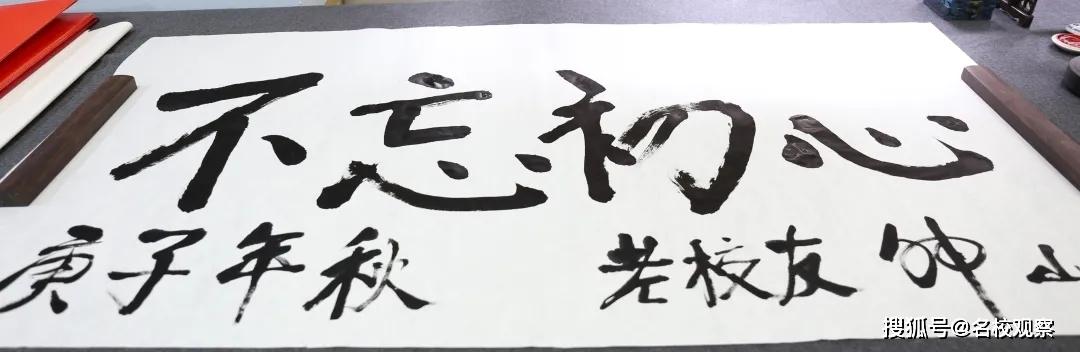 不忘初心
庚子年秋 老校友 钟山
搜狐号@名校观察